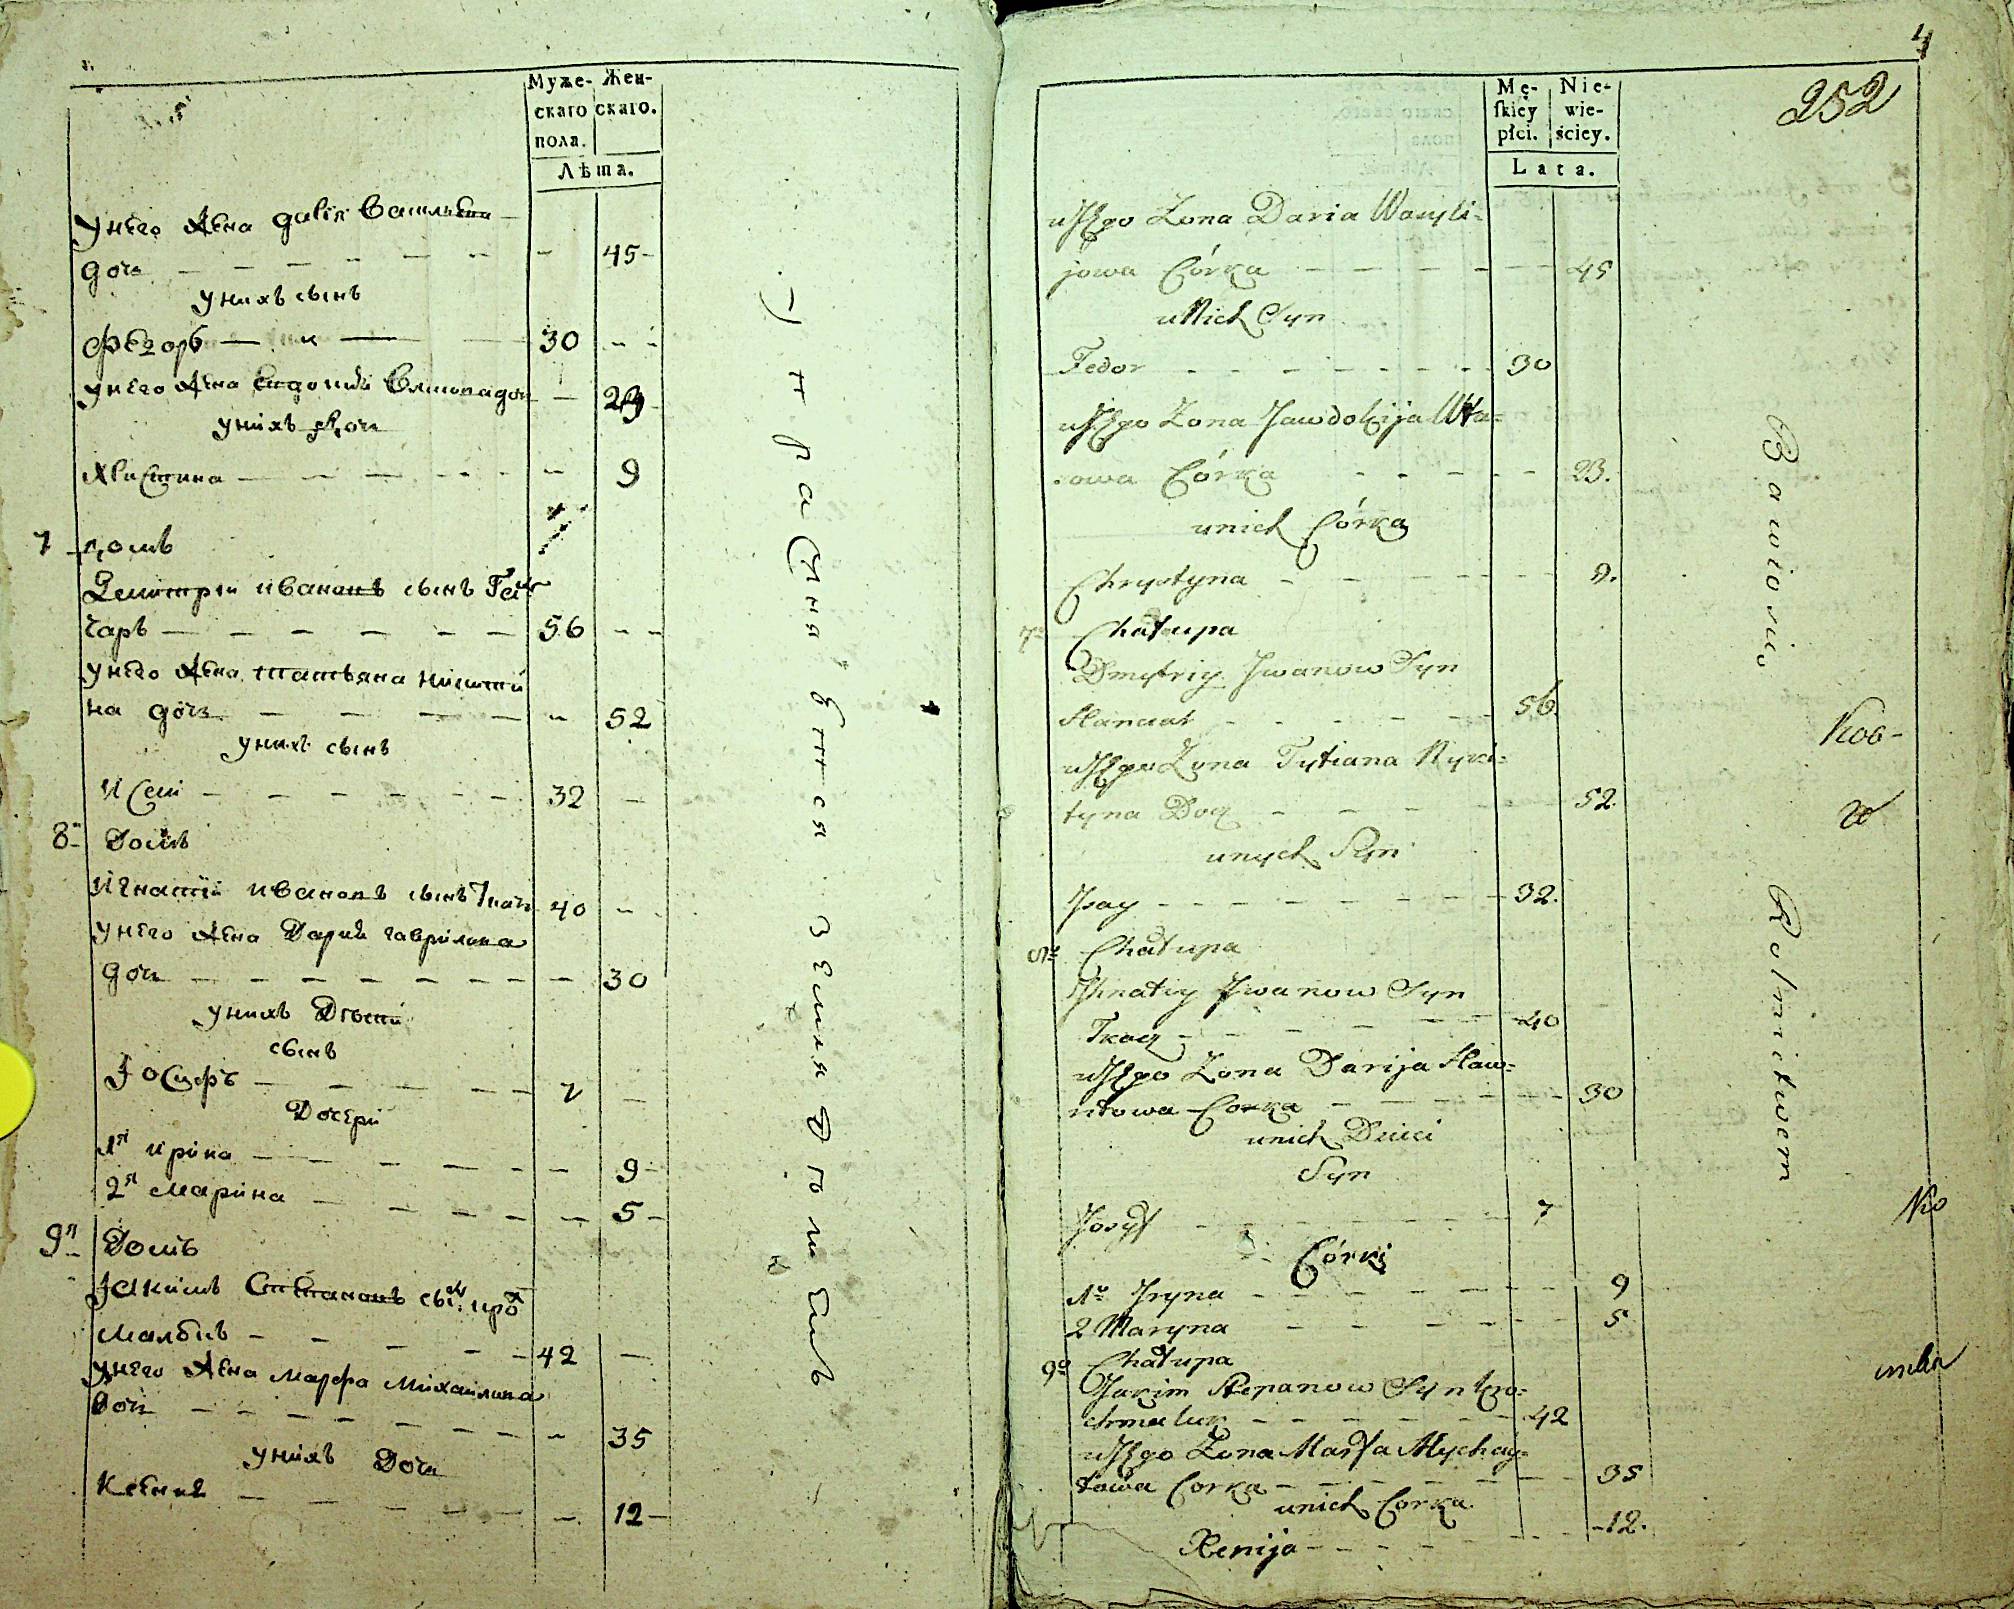 Муже-
скаго
пола.
Жен-
скаго.
Лѣта.
У него жена дарія Василиева
доч — 45
У нихъ сынъ
Федоръ — 30
У него жена Евдокия Власова доч — 23
У нихъ доч
Христина — 9
7 домъ
Димитрій Ивановъ сынъ Гон
чаръ — 56
У него жена Татьяна Никити
на доч — 52
У нихъ сынъ
Исай — 32
8й Домъ
Игнатій Ивановъ сынъ Ткачъ 40
У него жена Дарія Гаврилова
доч — 30
У нихъ Дѣти
сынъ
Іосифъ — 7
Дочери
1я Ирина — 9
2я Марина — 5
9й Домъ
Іакимъ Степановъ сынъ кро
малюкъ — 42
У него жена Марфа Михаилова
доч — 35
У нихъ Доч
Ксения — 12
Упражняются земледѣлиемъ
4
252
Mę-
skiey
płci.
Nie-
wie-
ściey.
Lata.
u Jego Zona Daria Wasyli-
jowa Córka — 45
u Nich Syn
Fedor — 30
u Jego Zona Jawdokija Wła-
sowa Córka — 23.
unich Córka
Chrystyna — 9.
7o Chałupa
Dmytriy Jwanow Syn
Hanczar — 56.
u Jego Zona Tytiana Nyki-
tyna Docz — 52.
unych Syn
Jsay — 32.
8o Chałupa
Jhnatiy Jwanow Syn
Tkacz — 40
u Jego Zona Darija Haw-
ryłowa Corka — 30
unich Dzieci
Syn
Josyf — 7
Córki
1o Jryna — 9
2 Maryna — 5
9o Chałupa
Jakim Stepanow Syn kro-
chmaluk — 42
u Jego Zona Marfa Mychay-
łowa Corka — 35
unich Corka
Xenija — 12.
Bawią się
Rolnictwem